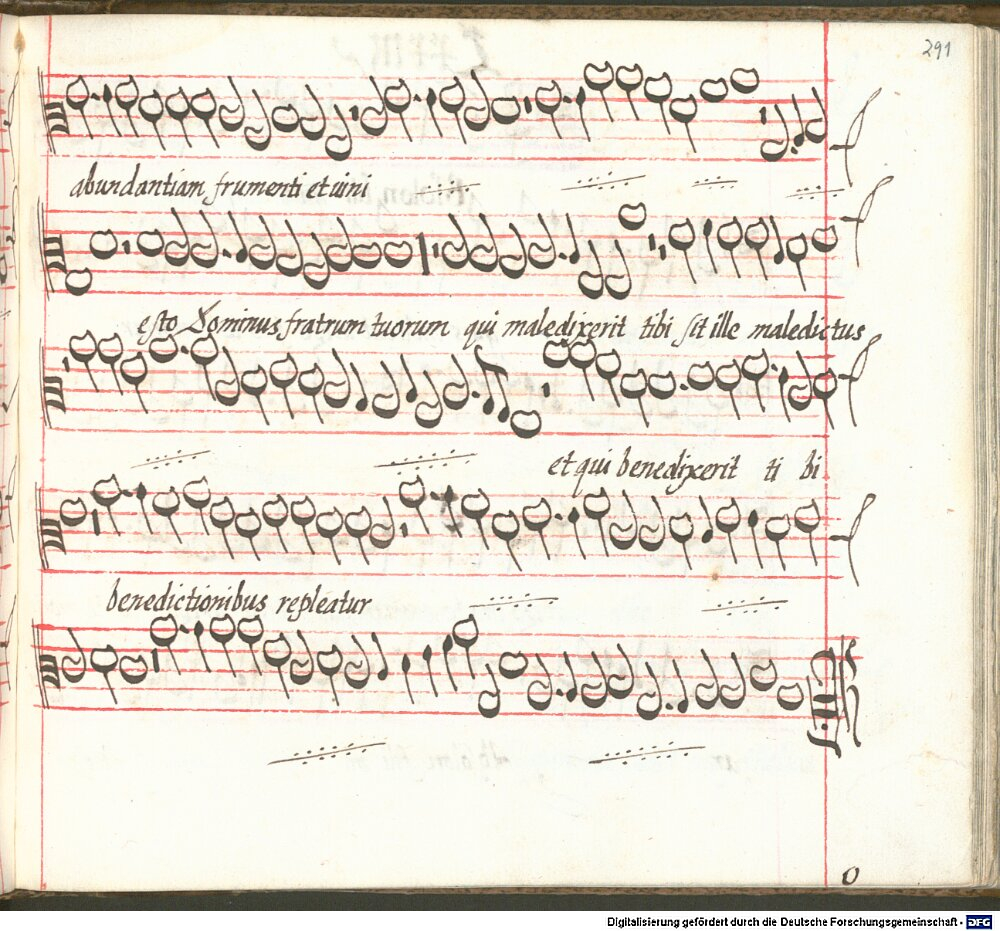 291
abundantiam frumenti et uini
esto Dominus fratrum tuorum qui maledixerit tibi sit ille maledictus
et qui benedixerit ti bi
benedictionibus repleatur
Digitalisierung gefördert durch die Deutsche Forschungsgemeinschaft - DFG